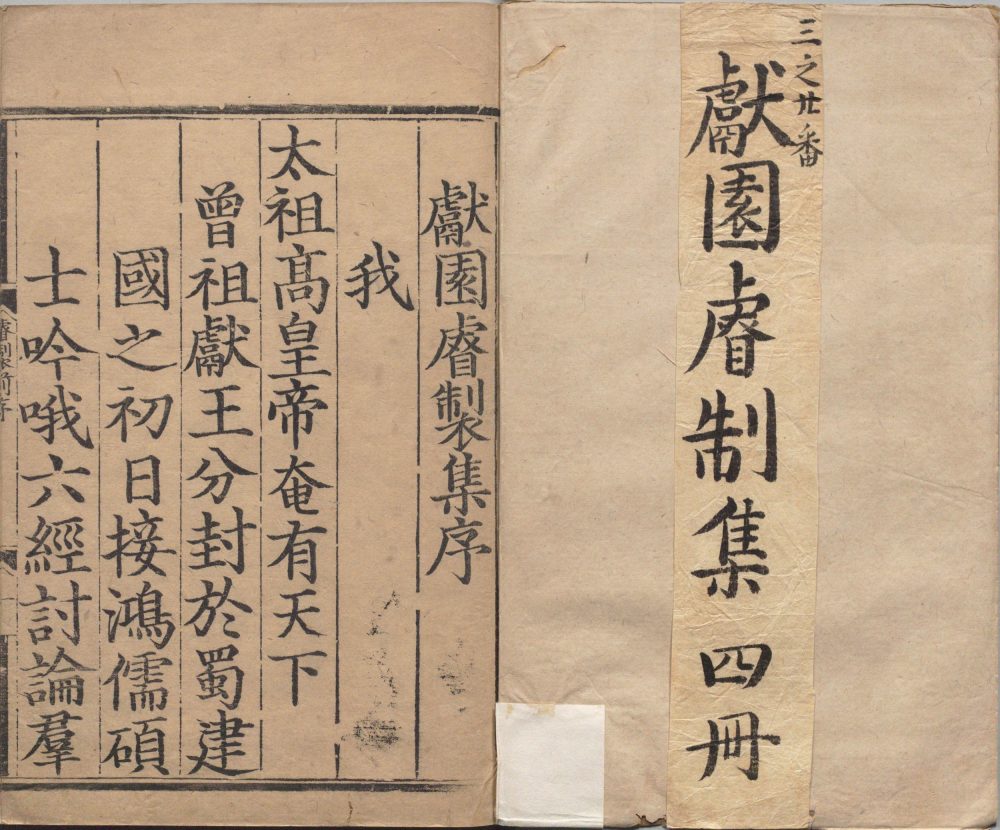 三之廿番
獻園睿制集 四冊
獻園睿製集序
我
太祖高皇帝奄有天下
曾祖獻王分封於蜀建
國之初日接鴻儒碩
士吟哦六經討論羣